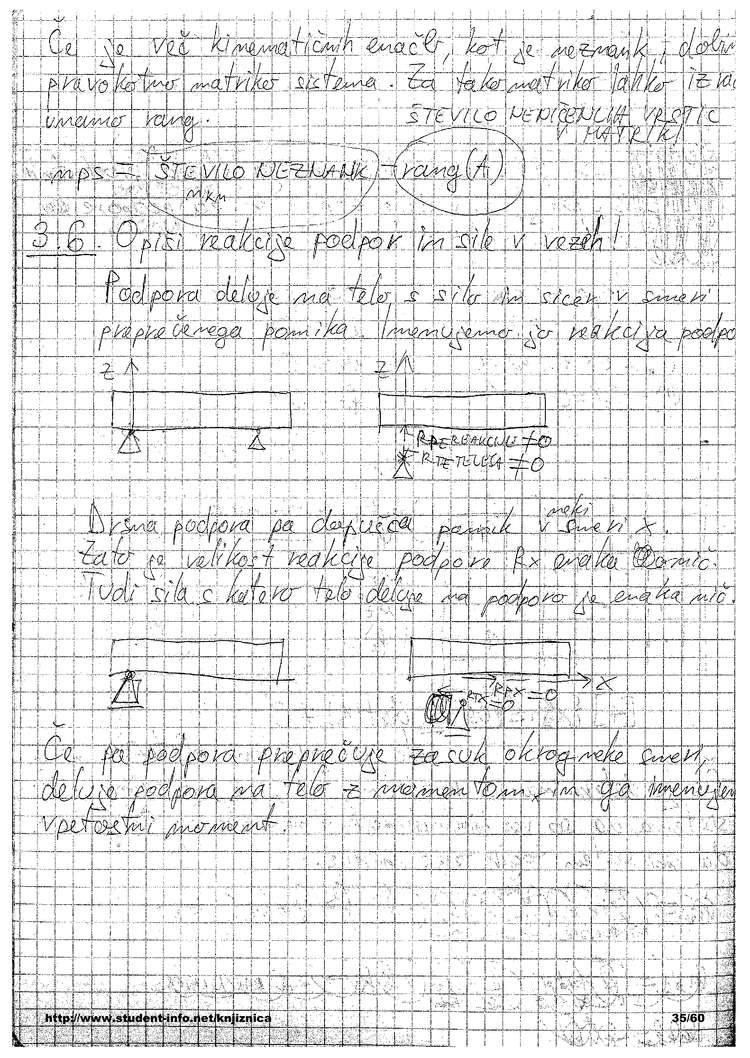 Če je več kinematičnih enačb, kot je neznank, dobim
pravokotno matriko sistema. Za tako matriko lahko izrač
unamo rang.
ŠTEVILO NENIČELNIH VRSTIC
V MATRIKI
nps = ŠTEVILO NEZNANK - rang (A)
3.6. Opiši reakcije podpor in sile v vezeh!
Podpora deluje na telo s silo in sicer v smeri
preprečenega pomika. Imenujemo jo reakcija podpo
z
z
≠0
≠0
Drsna podpora pa dopušča pomik v neki smeri x.
Zato je velikost reakcije podpore Rx enaka nič.
Tudi sila s katero telo deluje na podporo je enaka nič.
x
RPX=0
RTX=0
Če pa podpora preprečuje zasuk okrog neke smeri,
deluje podpora na telo z momentom, in ga imenujem
vpetostni moment.
http://www.student-info.net/knjiznica
35/60